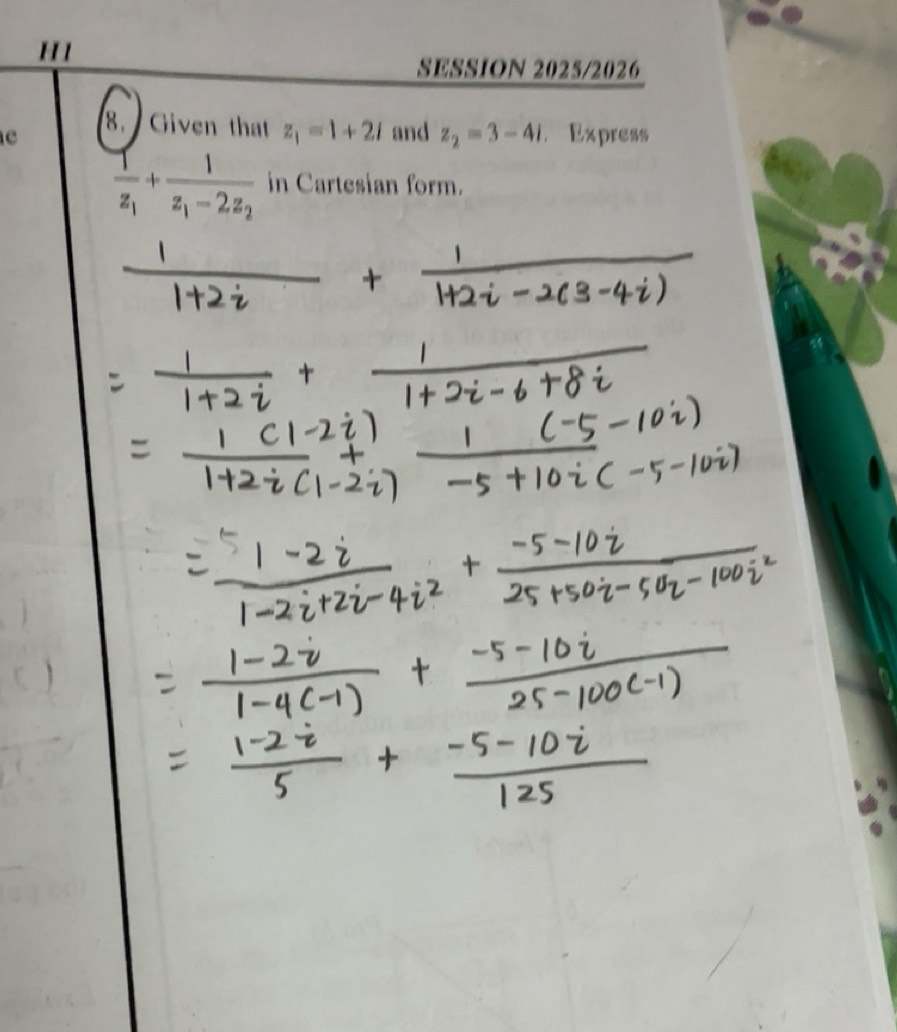 111
SESSION 2025/2026
8. Given that z₁ = 1 + 2i and z₂ = 3 − 4i. Express
1/z₁ + 1/(z₁ − 2z₂) in Cartesian form.
1/(1+2i) + 1/(1+2i−2(3−4i))
= 1/(1+2i) + 1/(1+2i−6+8i)
= 1 (1−2i)/(1+2i(1−2i)) + 1 (−5−10i)/(−5+10i(−5−10i))
= (1−2i)/(1−2i+2i−4i²) + (−5−10i)/(25+50i−50i−100i²)
= (1−2i)/(1−4(−1)) + (−5−10i)/(25−100(−1))
= (1−2i)/5 + (−5−10i)/125